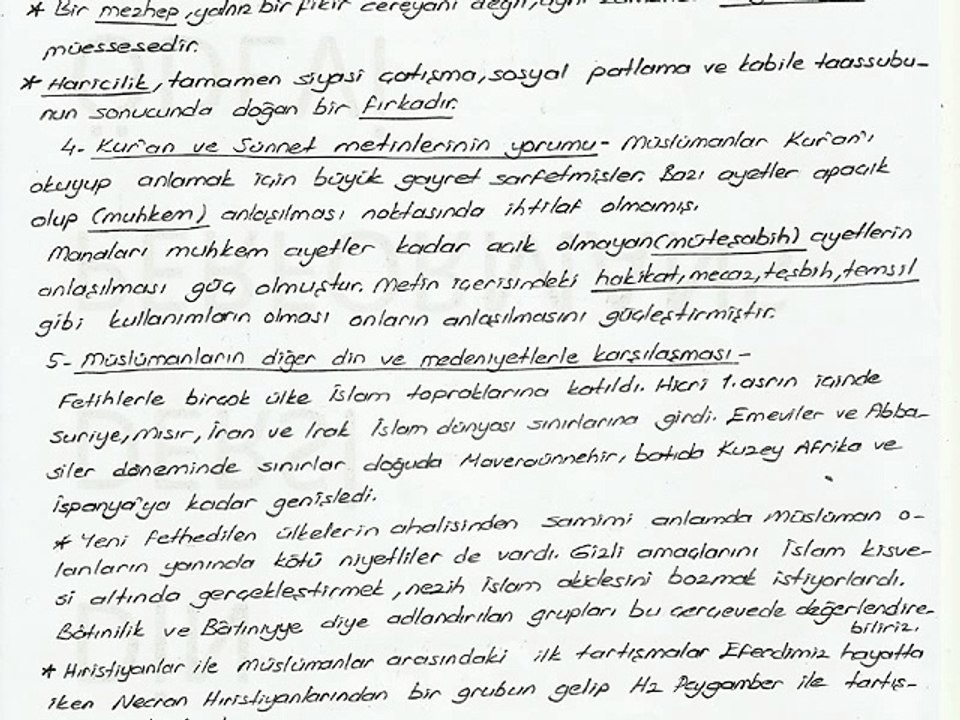 * Bir mezhep, yalnız bir fikir cereyanı değil, aynı
müessesedir.
* Haricilik, tamamen siyasi çatışma, sosyal patlama ve kabile taassubu-
nun sonucunda doğan bir fırkadır.
4- Kur'an ve Sünnet metinlerinin yorumu- Müslümanlar Kur'an'ı
okuyup anlamak için büyük gayret sarfetmişler. Bazı ayetler apaçık
olup (muhkem) anlaşılması noktasında ihtilaf olmamış.
Manaları muhkem ayetler kadar açık olmayan (müteşabih) ayetlerin
anlaşılması güç olmuştur. Metin içerisindeki hakikat, mecaz, teşbih, temsil
gibi kullanımların olması onların anlaşılmasını güçleştirmiştir.
5- Müslümanların diğer din ve medeniyetlerle karşılaşması-
Fetihlerle birçok ülke İslam topraklarına katıldı. Hicri 1. asrın içinde
Suriye, Mısır, İran ve Irak İslam dünyası sınırlarına girdi. Emeviler ve Abba-
siler döneminde sınırlar doğuda Maveraünnehir, batıda Kuzey Afrika ve
İspanya'ya kadar genişledi.
* Yeni fethedilen ülkelerin ahalisinden samimi anlamda Müslüman o-
lanların yanında kötü niyetliler de vardı. Gizli amaçlarını İslam kisve-
si altında gerçekleştirmek, nezih İslam akidesini bozmak istiyorlardı.
Bâtınilik ve Bâtıniyye diye adlandırılan grupları bu çerçevede değerlendire-
biliriz.
* Hıristiyanlar ile müslümanlar arasındaki ilk tartışmalar Efendimiz hayatta
iken Necran Hıristiyanlarından bir grubun gelip Hz Peygamber ile tartış-